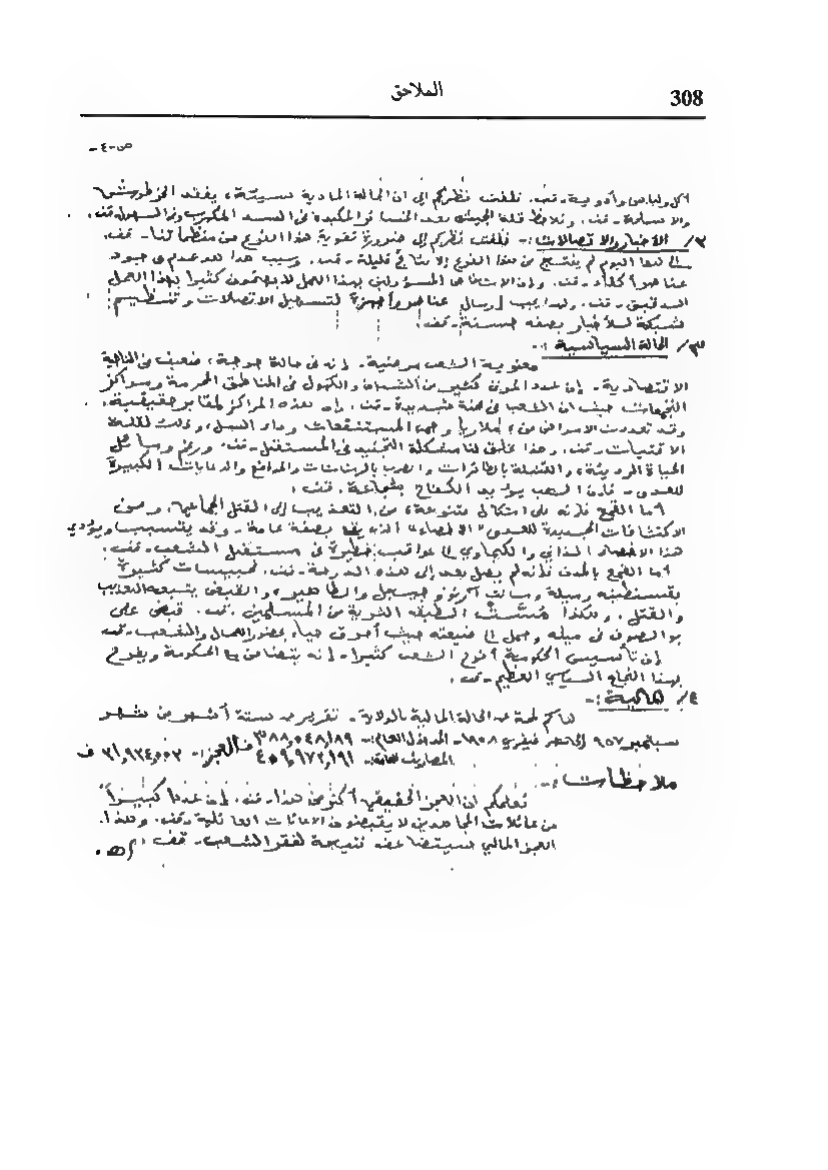 308
الملاحق
ص-٤-
أكل ولباس وأدوية - قف. نلفت نظركم إلى أن الحالة المادية سيئة، يفقد
والا - قف. ونلاحظ قلة الجيش بعد الخسائر في السد المكهرب
٢/ الأخبار والاتصالات :- فلفت نظركم إلى ضرورة تقوية هذا النوع من منظماتنا - قف.
إلى هذا اليوم لم ينتج من هذا النوع إلا نتائج قليلة - قف. وسبب هذا هو عدم وجود
عناصر أكفاء - قف. وإن الأشخاص المسؤولين بهذا العمل لا يهتمون كثيرا بهذا العمل
الدقيق - قف. ولهذا يجب إرسال عناصر وأجهزة لتسهيل الاتصالات وتنظيم
شبكة للأخبار بصفة حسنة - قف.
٣/ الحالة السياسية :-
معنوية الشعب مرضية. إنه في حالة حرجة، ضعيف من الناحية
الاقتصادية. إن عدد الموتى كثير من الشبان والكهول في المناطق المحرمة ومراكز
التجمعات حيث أن الشعب في محنة شديدة - قف. إن هذه المراكز لمقابر حقيقية.
وقد تعددت الأمراض من: ملاريا وحمى المستنقعات وداء السل، وذلك لقلة
الاقتيات - قف. وهذا يخلق لنا مشكلة التجنيد في المستقبل - قف. ورغم وسائل
الحياة الرديئة، والقنبلة بالطائرات والضرب بالرشاشات والمدافع والدعايات الكبيرة
للعدو - فإن الشعب يؤيد الكفاح بشجاعة. قف.
أما القمع فإنه على أشكال متنوعة، من التعذيب إلى القتل الجماعي، ومن
الاكتشافات الجديدة للعدو "الإخصاء" الذي يقع بصفة عامة - وقد يتسبب ويؤدي
هذا الإخصاء الذاتي والكيماوي إلى عواقب خطيرة في مستقبل الشعب - قف.
أما القمع بالمدن فإنه لم يصل بعد إلى هذه الدرجة - قف. تحبيسات كثيرة
بقسنطينة وميلة وسانت آرنو وجيجل والطاهير، والقبض يتبعه التعذيب
والقتل. وهكذا الطبقة الثرية من المسلمين. قف. قبض على
بو الصوف في ميلة وحمل إلى ضيعته حيث أحرق حيا، بحضور العمال والشعب - قف
إن تأسيس الحكومة أفرح الشعب كثيرا - إنه يتضامن مع الحكومة ويفرح
بهذا النجاح السياسي العظيم - قف.
٤/ مالية :-
هاكم لمحة عن الحالة المالية بالولاية - تقرير عن ستة أشهر من شهر
سبتمبر ٩٥٧ إلى فيفري ٩٥٨ - المدخول العام :- ٣٨٨,٥٤٨,١٨٩ ف
المصاريف العامة :- ٤٥٩,٩٧٢,١٩١ العجز :- ف
ملاحظات :-
نعلمكم أن العجز الحقيقي أكثر من هذا - قف. فإن عددا كبيرا
من عائلات المجاهدين لا يقبضون الإعانات العائلية - قف. وهذا
العجز المالي سيتضاعف نتيجة لفقر الشعب - قف. اهـ.